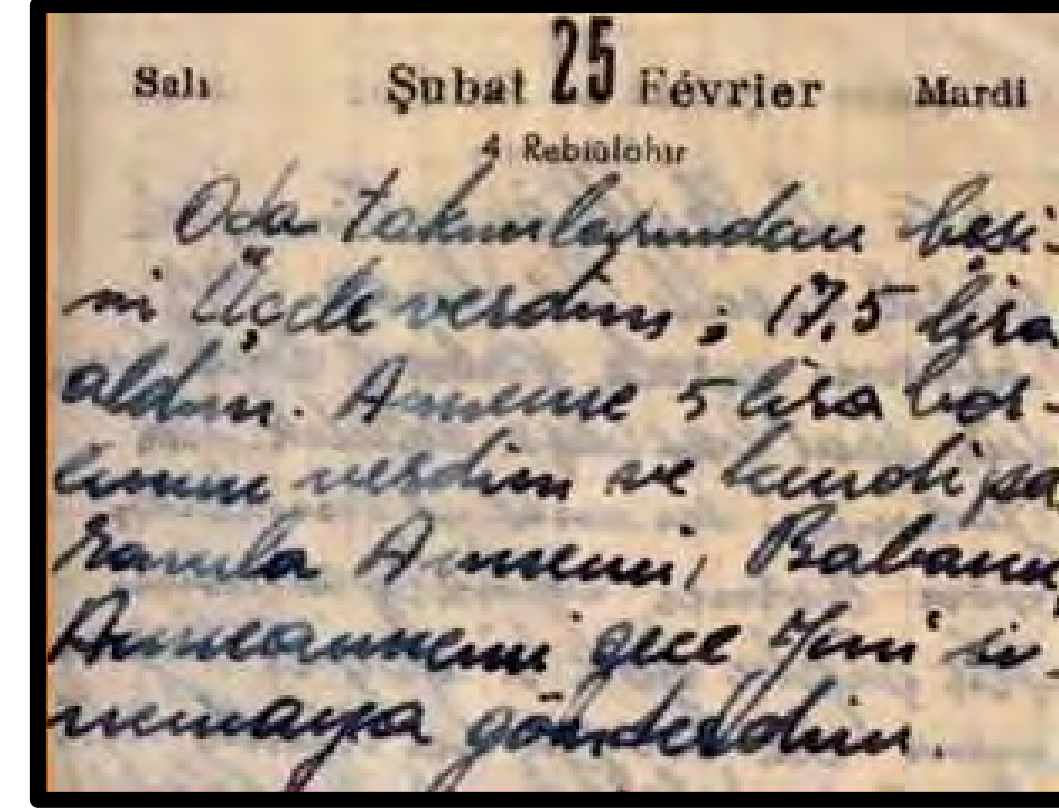 Salı Şubat 25 Février Mardi
4 Rebiülâhır
Oda takımlarından beşi-
ni Üçde verdim; 17,5 lira
aldım. Anneme 5 lira bor-
cumu verdim ve kendi pa
ramla Annemi, Babamı,
Anneannemi gece Yeni si-
nemaya gönderdim.